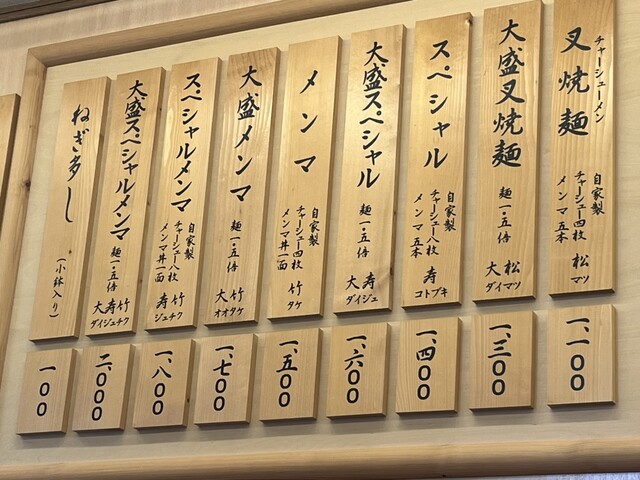 チャーシューメン
叉焼麺
自家製
チャーシュー四枚
メンマ五本
松
マツ
一、一〇〇
大盛叉焼麺
麺一・五倍
大松
ダイマツ
一、三〇〇
スペシャル
自家製
チャーシュー八枚
メンマ五本
寿
コトブキ
一、四〇〇
大盛スペシャル
麺一・五倍
大寿
ダイジュ
一、六〇〇
メンマ
自家製
チャーシュー四枚
メンマ丼一面
竹
タケ
一、五〇〇
大盛メンマ
麺一・五倍
大竹
オオタケ
一、七〇〇
スペシャルメンマ
自家製
チャーシュー八枚
メンマ丼一面
寿竹
ジュチク
一、八〇〇
大盛スペシャルメンマ
麺一・五倍
大寿竹
ダイジュチク
二、〇〇〇
ねぎ多し
（小鉢入り）
一〇〇